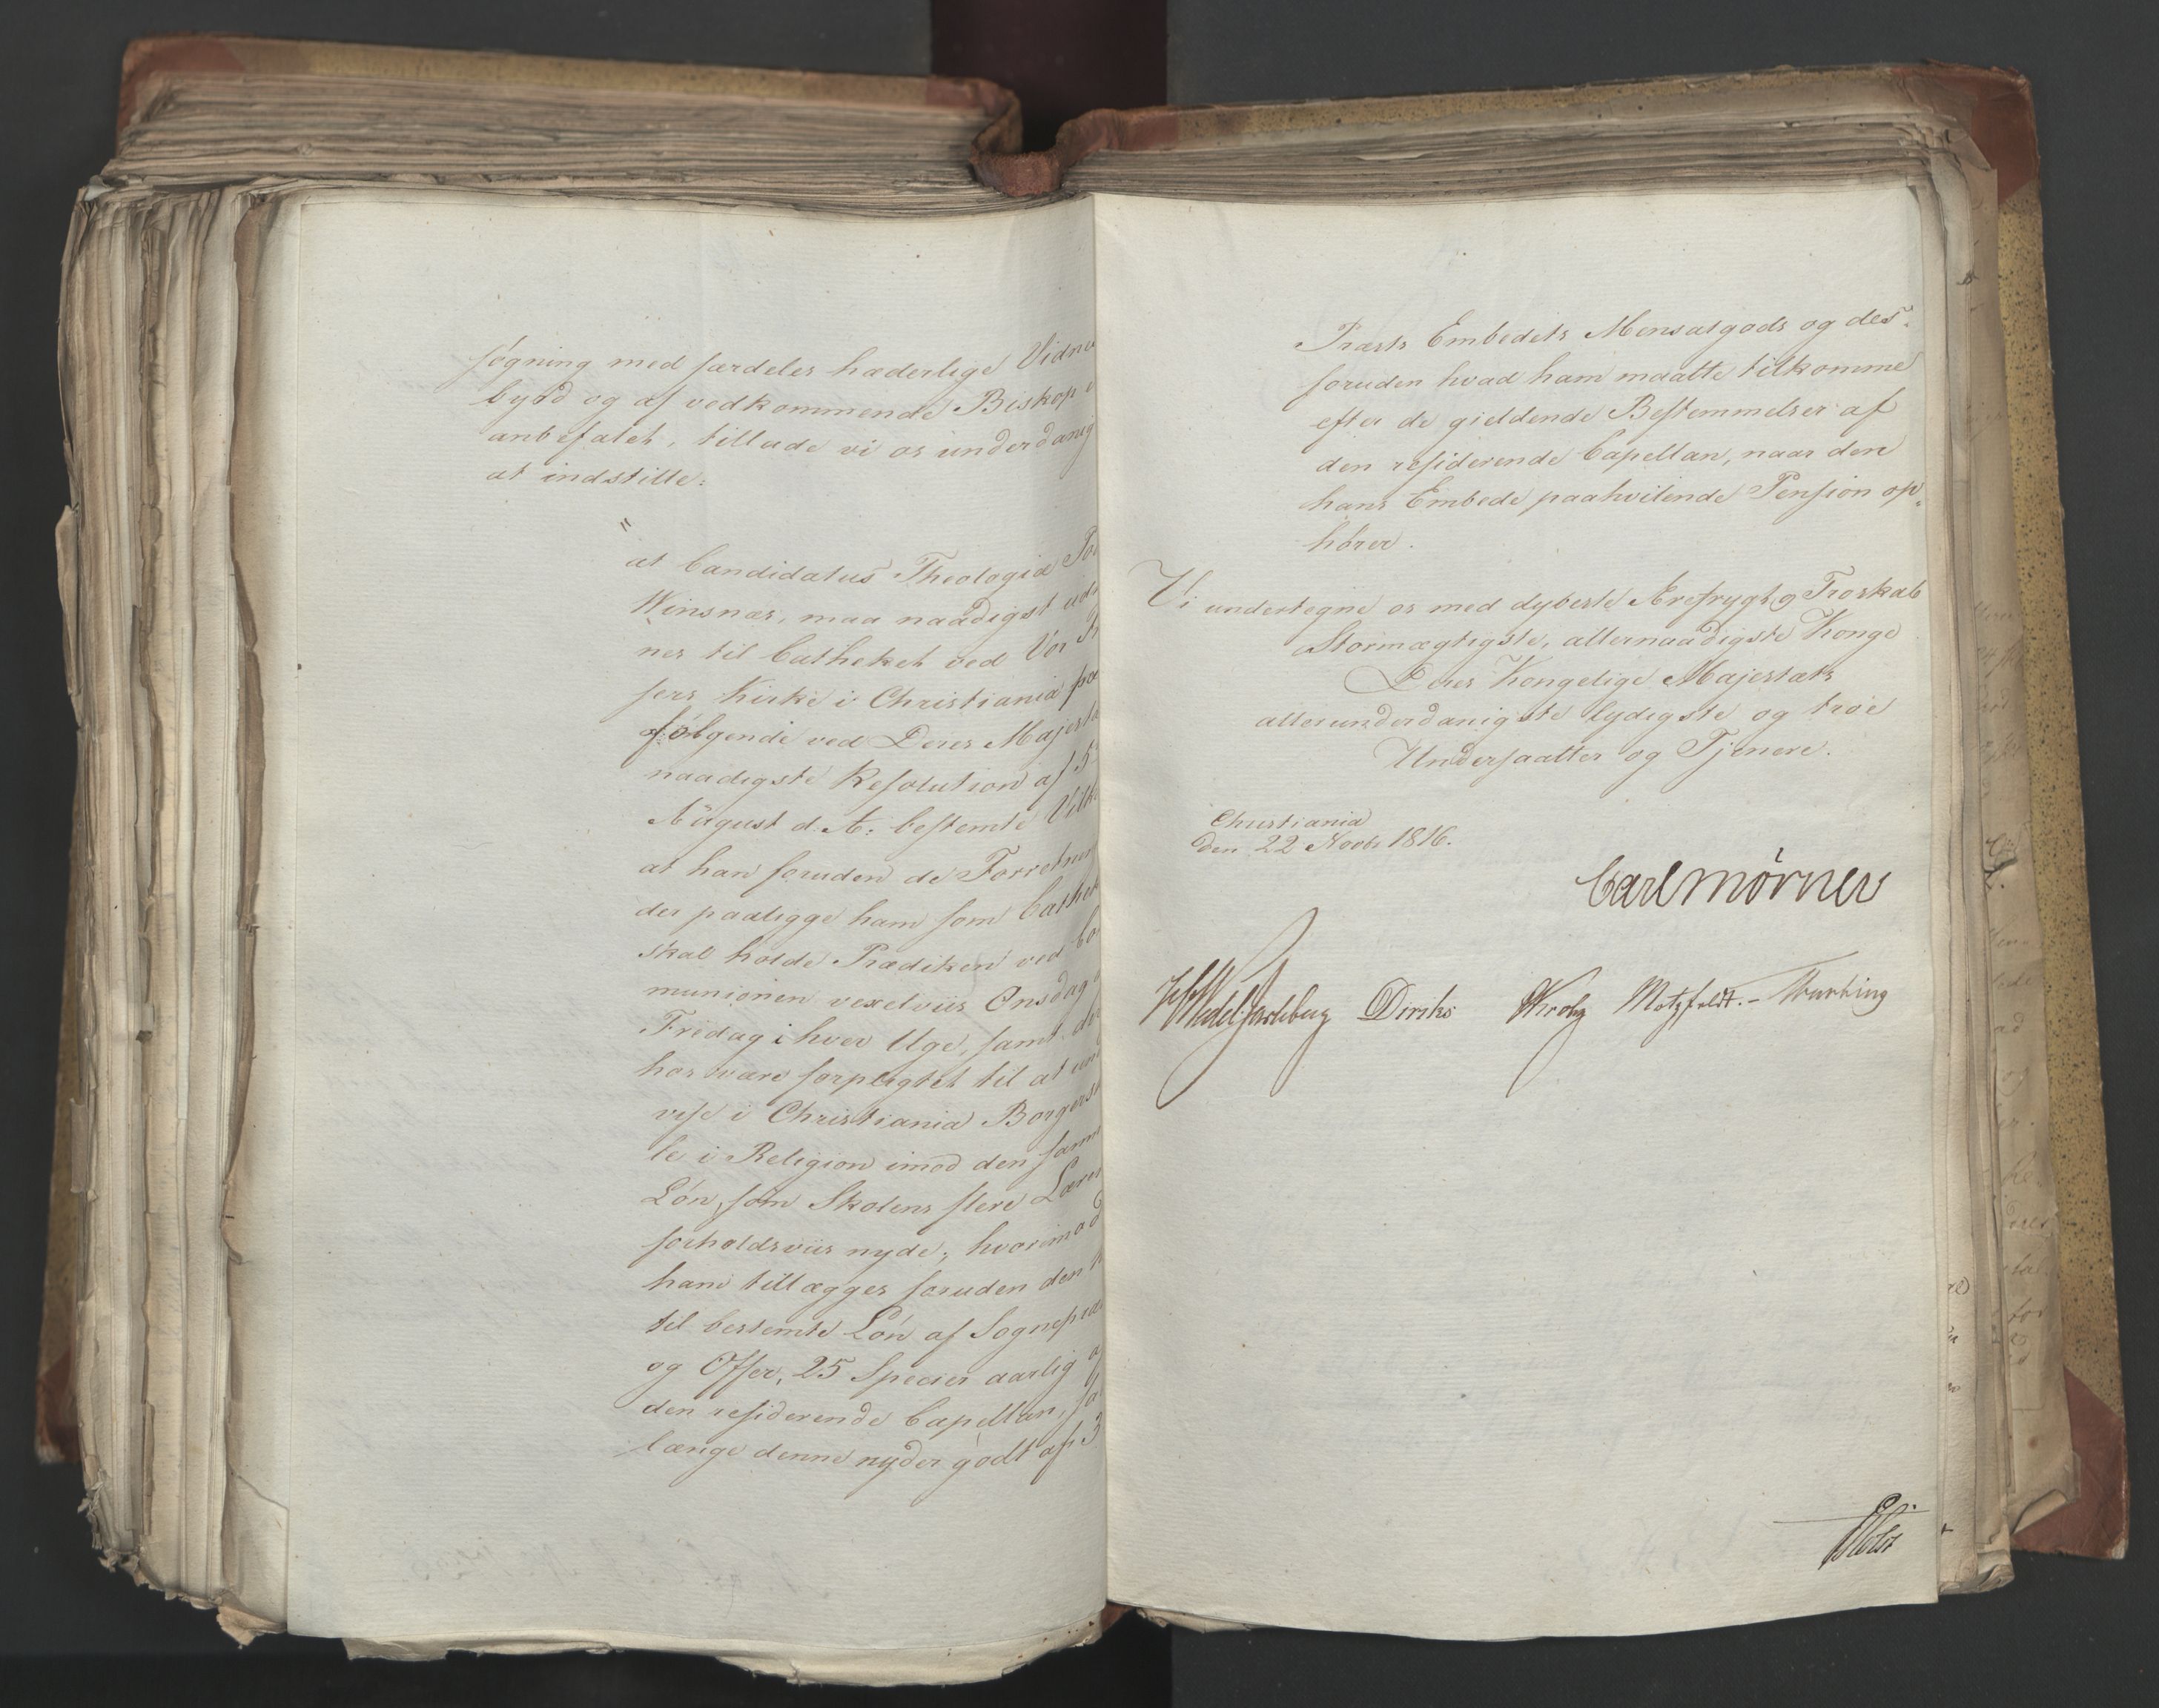 søgning med særdeles hæderlige Vidnes
byrd og af vedkommende Biskop
anbefalet, tillade vi os underdanig
at indstille:
"
at Candidatus Theologiæ
Winsnæs, maa naadigst
nes til Catheket ved Vor
sers Kirke i Christiania paa
følgende ved Deres Majestæ
naadigste Resolution af 5
August d. A. bestemte Vilk
at han foruden de Forretnin
der paaligge ham som Cathek
skal holde Prædiken ved Co
munionen vexelviis Onsdag
Fredag i hver Uge, samt
hos være forpligtet til at und
vise i Christiania Borgers
le i Religion imod den samm
Løn, som Skolens flere Lærer
forholdsviis nyde; hvorimod
ham tillægges foruden den
til bestemte Løn af Sognepræs
og Offer, 25 Specier aarlig af
den residerende Capellan, saa
længe denne nyder godt af 3
Præsts Embedets Mensalgods og des-
foruden hvad ham maatte tilkomme
efter de gieldende Bestemmelser af
den residerende Capellan, naar den
hans Embede paahvilende Pension op-
hører.
Vi undertegne os med dybeste Ærefrygt og Troskab
Stormægtigste, allernaadigste Konge
Deres Kongelige Majestæts
allerunderdanigste lydigste og troe
Undersaatter og Tjenere.
Christiania
den 22 Novbr 1816.
Carl Mörner
Wedel Jarlsberg Diriks Krohg Motzfeldt.-
Holst